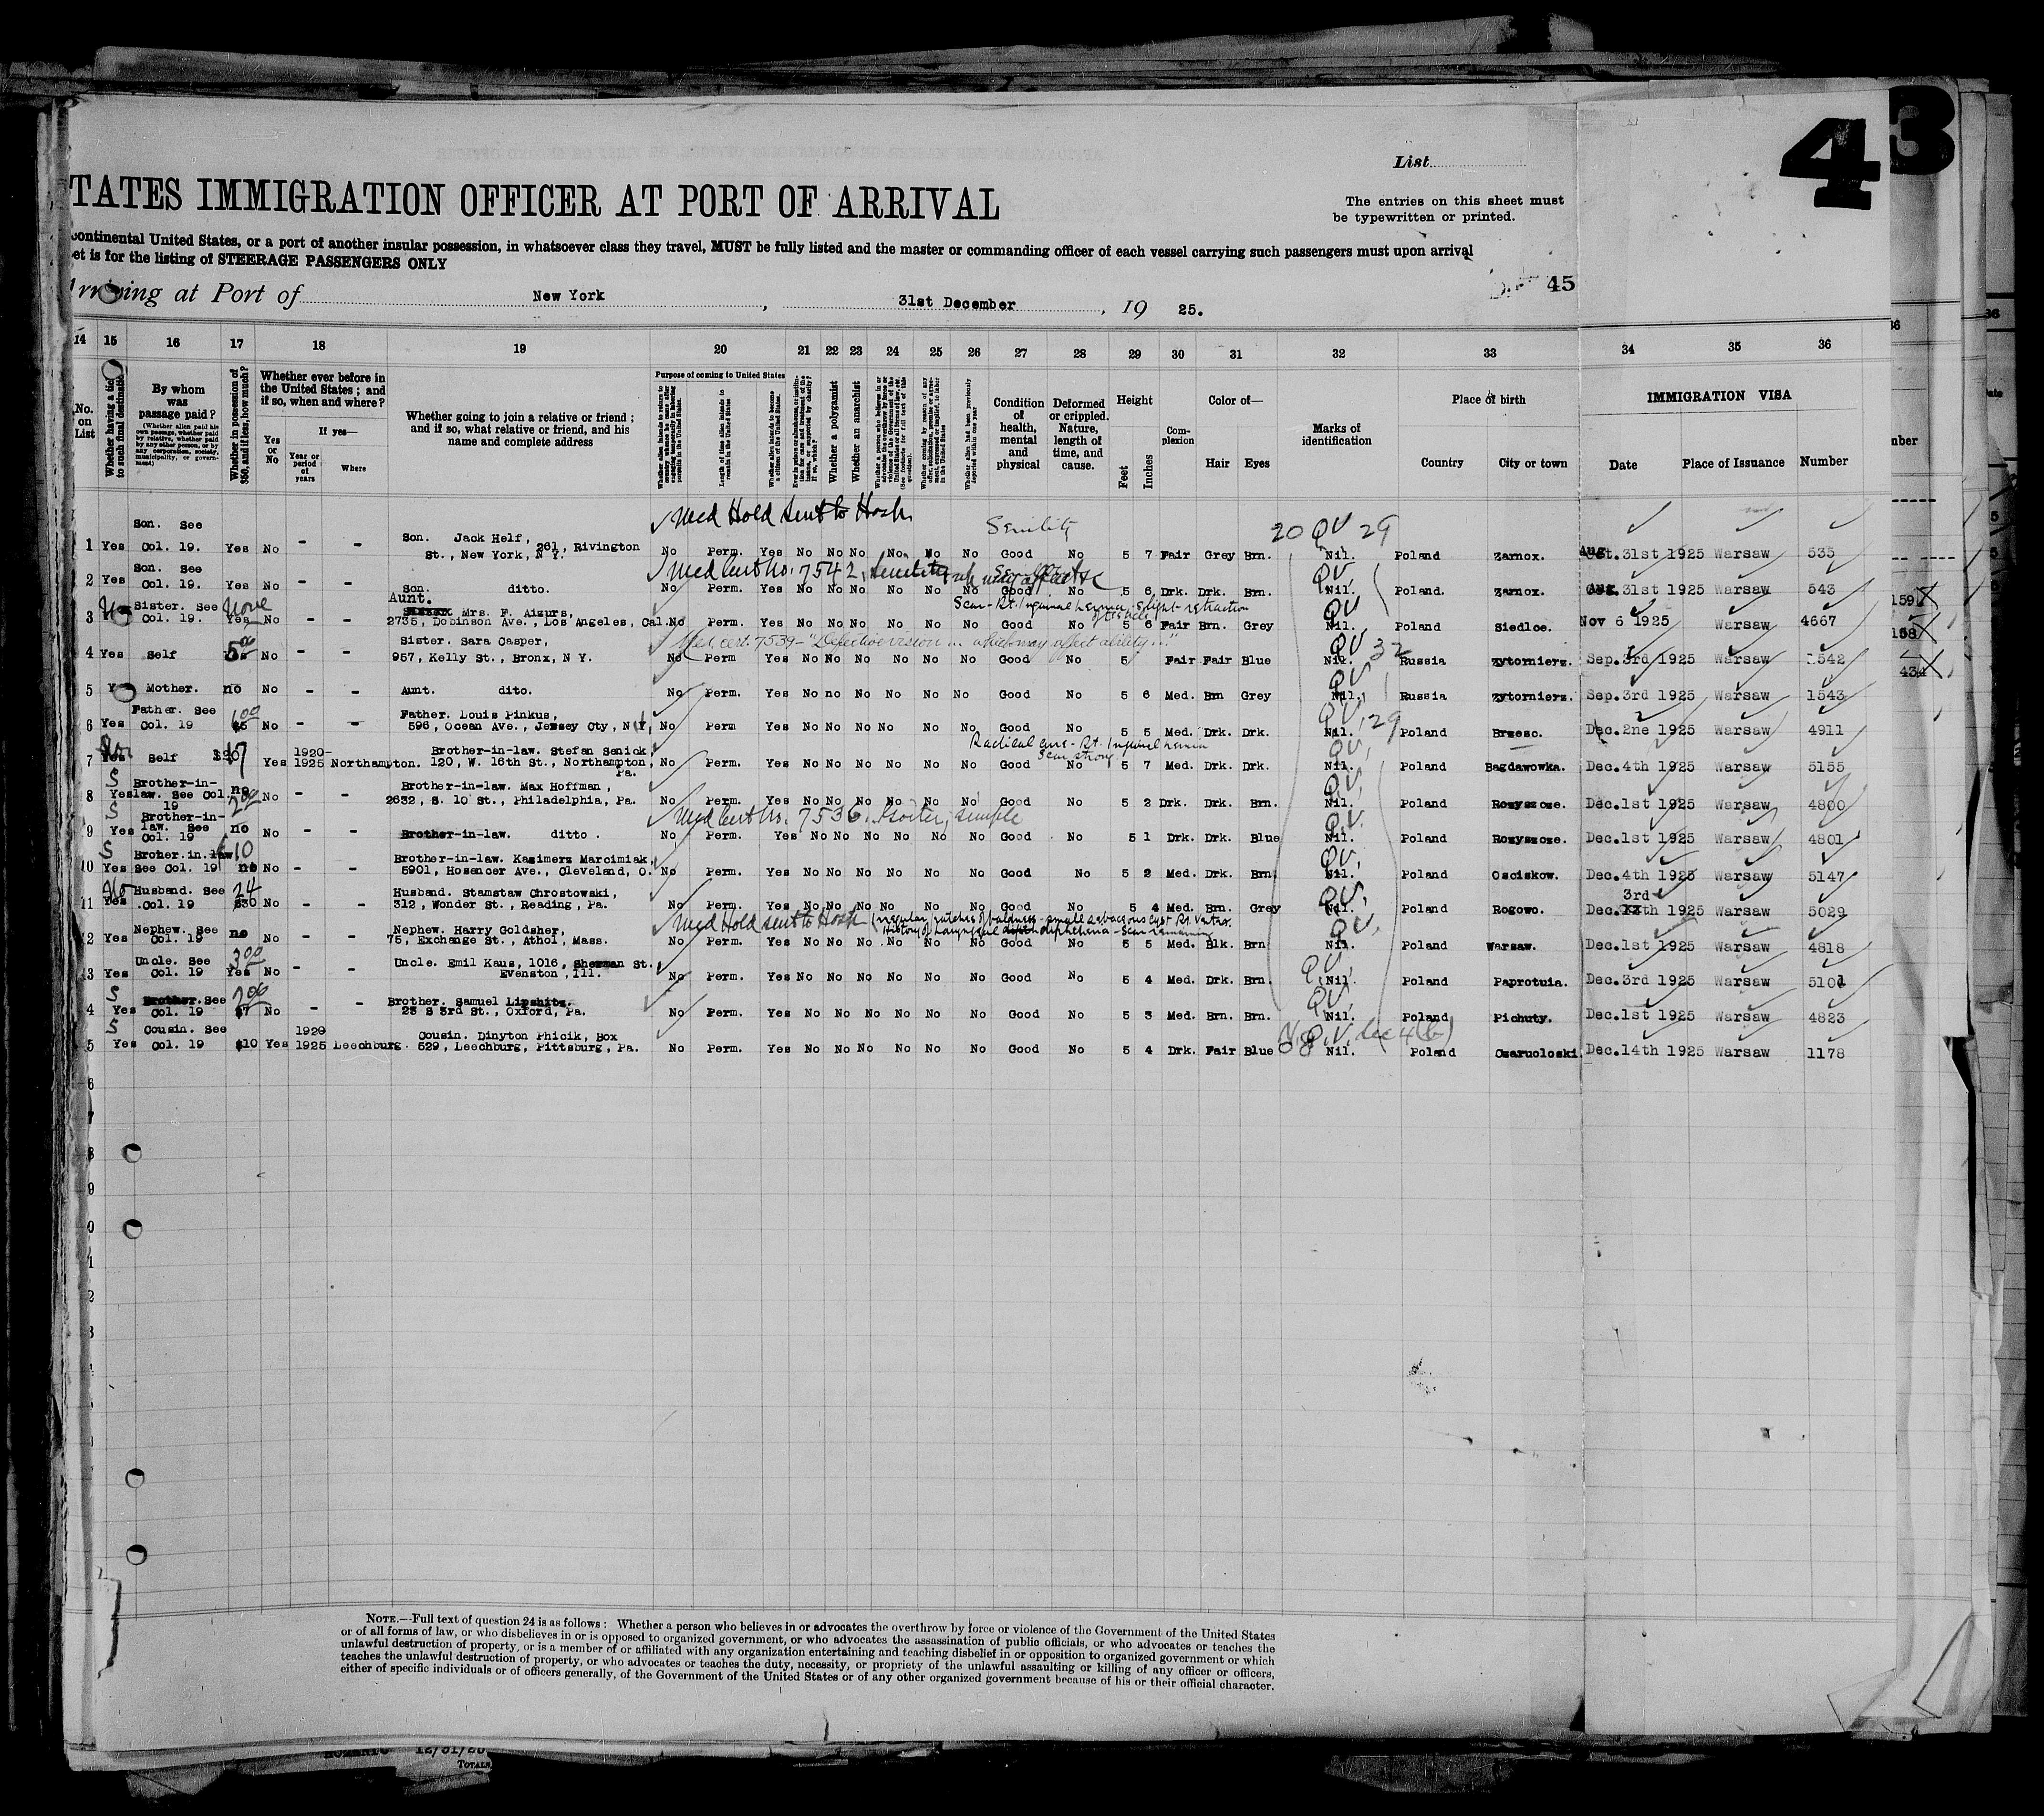 4
3
List
TATES IMMIGRATION OFFICER AT PORT OF ARRIVAL
The entries on this sheet must
be typewritten or printed.
continental United States, or a port of another insular possession, in whatsoever class they travel, MUST be fully listed and the master or commanding officer of each vessel carrying such passengers must upon arrival
et is for the listing of STEERAGE PASSENGERS ONLY
45
ing at Port of New York, 31st December, 19 25.
14 15 16 17 18 19 20 21 22 23 24 25 26 27 28 29 30 31 32 33 34 35 36
No. on List
Whether having a ticket to such final destination
By whom was passage paid?
(Whether alien paid his own passage, whether paid by relative, whether paid by any other person, or by any corporation, society, municipality, or government)
Whether in possession of $50, and if less, how much?
Whether ever before in the United States; and if so, when and where?
Yes or No
If yes—
Year or period of years
Where
Whether going to join a relative or friend; and if so, what relative or friend, and his name and complete address
Purpose of coming to United States
Length of time alien intends to remain in the United States
Whether alien intends to become a citizen of the United States
Whether a polygamist
Whether an anarchist
Whether alien had been previously deported within one year
Condition of health, mental and physical
Deformed or crippled. Nature, length of time, and cause.
Height
Feet
Inches
Complexion
Color of—
Hair
Eyes
Marks of identification
Place of birth
Country
City or town
IMMIGRATION VISA
Date
Place of Issuance
Number
Med Hold sent to Hosp. Senility 20 QV 29
1 Yes Son. See Col. 19. Yes No - - Son. Jack Helf, 261, Rivington St., New York, N Y. No Perm. Yes No No No No No No Good No 5 7 Fair Grey Brn. Nil. Poland Zarnox. Aug. 31st 1925 Warsaw 535
Med Cert No. 7542, Senility QV
2 Yes Son. See Col. 19. Yes No - - Son. ditto. No Perm. Yes No No No No No No Good No 5 6 Drk. Drk. Brn. Nil. Poland. Zarnox. Aug. 31st 1925 Warsaw 543
Scar-Rt. Inguinal hernia, slight retraction QV
3 No Sister. See Col. 19. None Yes No - - Aunt. Mrs. F. Aizurs, 2735, Dobinson Ave., Los Angeles, Cal. No Perm. Yes No No No No No No Good No 5 6 Fair Brn. Grey Nil. Poland Siedlce. Nov 6 1925 Warsaw 4667
Med. cert. 7539 - "Defective vision ... which may affect ability ..." QV 32
4 Yes Self 5.00 No - - Sister. Sara Casper, 957, Kelly St., Bronx, N Y. No Perm Yes No No No No No No Good No 5 Fair Fair Blue Nil. Russia Zytornierz. Sep. 3rd 1925 Warsaw 1542
QV
5 Mother. no No - - Aunt. dito. No Perm. Yes No no No No No No Good No 5 6 Med. Brn Grey Nil. Russia Zytornierz. Sep. 3rd 1925 Warsaw 1543
QV, 29
6 Yes Father. See Col. 19 1.00 $5 No - - Father. Louis Pinkus, 596, Ocean Ave., Jersey Cty, N Y. No Perm Yes No No No No No No Good No 5 5 Med. Drk. Drk. Nil. Poland Brzesc. Dec. 2ne 1925 Warsaw 4911
Radical cure - Rt. Inguinal hernia Scar strong. QV,
7 Yes Self $20 17 Yes 1920-1925 Northampton. Brother-in-law. Stefan Senick, 120, W. 16th St., Northampton, Pa. No Perm. Yes No No No No No No Good No 5 7 Med. Drk. Drk. Nil. Poland Bagdawowka. Dec. 4th 1925 Warsaw 5155
S QV,
8 Yes Brother-in-law. See Col. 19 no No - - Brother-in-law. Max Hoffman, 2632, S. 10 St., Philadelphia, Pa. No Perm. Yes No No No No No No Good No 5 2 Drk. Drk. Brn. Nil. Poland Rozyszcze. Dec. 1st 1925 Warsaw 4800
S 2.00 Med Cert No. 7536. Goiter, simple QV.
9 Yes Brother-in-law. See Col. 19 no No - - Brother-in-law. ditto. No Perm. Yes No No No No No No Good No 5 1 Drk. Drk. Blue Nil. Poland Rozyszcze. Dec. 1st 1925 Warsaw 4801
S 10 QV,
10 Yes Broher.in.law See Col. 19 no No - - Brother-in-law. Kazimerz Marcimiak, 5901, Hosancer Ave., Cleveland, O. No Perm. Yes No No No No No No Good No 5 2 Med. Drk. Brn. Nil. Poland Osciskow. Dec. 4th 1925 Warsaw 5147
No 24 QV, 3rd
11 Yes Husband. See Col. 19 $30 No - - Husband. Stamstaw Chrostowski, 312, Wonder St., Reading, Pa. No Perm. Yes No No No No No No Good No 5 4 Med. Brn. Grey Nil. Poland Rogowo. Dec. 1925 Warsaw 5029
Med Hold sent to Hosp Irregular patches of baldness - small sebaceous cyst Rt. Vertex. History of Laryngeal diphtheria - Scar remaining QV,
12 Yes Nephew. See Col. 19 no No - - Nephew. Harry Goldsher, 75, Exchange St., Athol, Mass. No Perm. Yes No No No No No No Good No 5 5 Med. Blk. Brn Nil. Poland Warsaw. Dec. 1st 1925 Warsaw 4818
3.00 QV,
13 Yes Uncle. See Col. 19 Yes No - - Uncle. Emil Kaus, 1016, Sherman St., Evenston, Ill. No Perm. Yes No No No No No No Good No 5 4 Med. Drk. Brn. Nil. Poland Paprotuia. Dec. 3rd 1925 Warsaw 5101
S 2.00 QV,
14 Yes Brother. See Col. 19 $7 No - - Brother. Samuel Lipshitz. 23 S 3rd St., Oxford, Pa. No Perm. Yes No No No No No No Good No 5 3 Med. Brn. Brn. Nil. Poland Pichuty. Dec. 1st 1925 Warsaw 4823
S N.Q.V. Sec 4(b)
15 Yes Cousin. See Col. 19 $10 Yes 1929 1925 Leechburg. Cousin. Dinyton Phicik, Box 529, Leechburg, Pittsburg, Pa. No Perm. Yes No No No No No No Good No 5 4 Drk. Fair Blue Nil. Poland Czaruoloski. Dec. 14th 1925 Warsaw 1178
NOTE.—Full text of question 24 is as follows: Whether a person who believes in or advocates the overthrow by force or violence of the Government of the United States
or of all forms of law, or who disbelieves in or is opposed to organized government, or who advocates the assassination of public officials, or who advocates or teaches the
unlawful destruction of property, or is a member of or affiliated with any organization entertaining and teaching disbelief in or opposition to organized government or which
teaches the unlawful destruction of property, or who advocates or teaches the duty, necessity, or propriety of the unlawful assaulting or killing of any officer or officers,
either of specific individuals or of officers generally, of the Government of the United States or of any other organized government because of his or their official character.
TOTALS